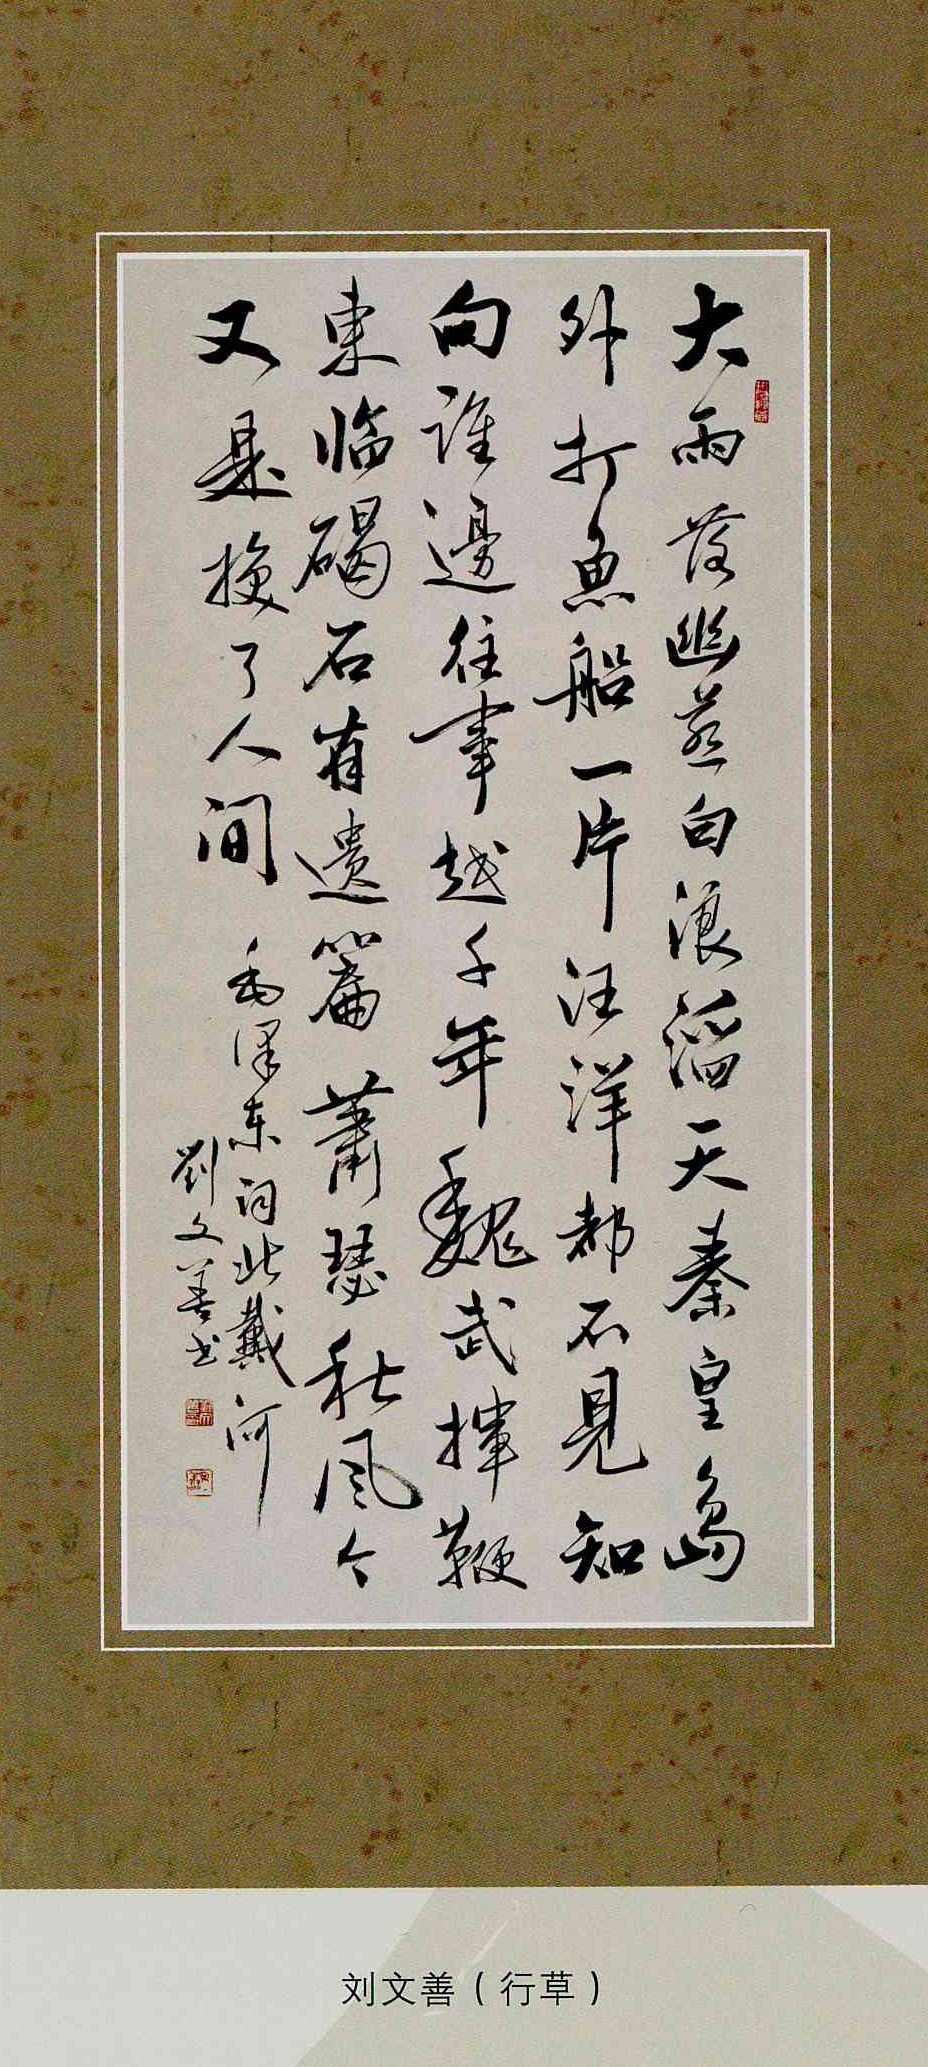 大雨落幽燕白浪滔天秦皇岛
外打鱼船一片汪洋都不见知
向谁邊往事越千年魏武挥鞭
東临碣石有遗篇萧瑟秋风今
又是换了人间
毛泽东词北戴河
劉文善书
刘文善（行草）